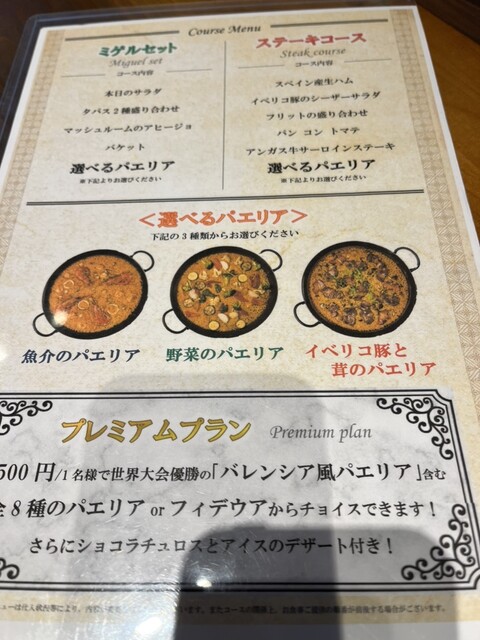 Course Menu
ミゲルセット
Miguel set
コース内容
本日のサラダ
タパス2種盛り合わせ
マッシュルームのアヒージョ
バケット
選べるパエリア
※下記よりお選びください
ステーキコース
Steak course
コース内容
スペイン産生ハム
イベリコ豚のシーザーサラダ
フリットの盛り合わせ
パン コン トマテ
アンガス牛サーロインステーキ
選べるパエリア
※下記よりお選びください
<選べるパエリア>
下記の3種類からお選びください
魚介のパエリア
野菜のパエリア
イベリコ豚と
茸のパエリア
プレミアムプラン Premium plan
500円/1名様で世界大会優勝の「バレンシア風パエリア」含む
全8種のパエリア or フィデウアからチョイスできます!
さらにショコラチュロスとアイスのデザート付き!